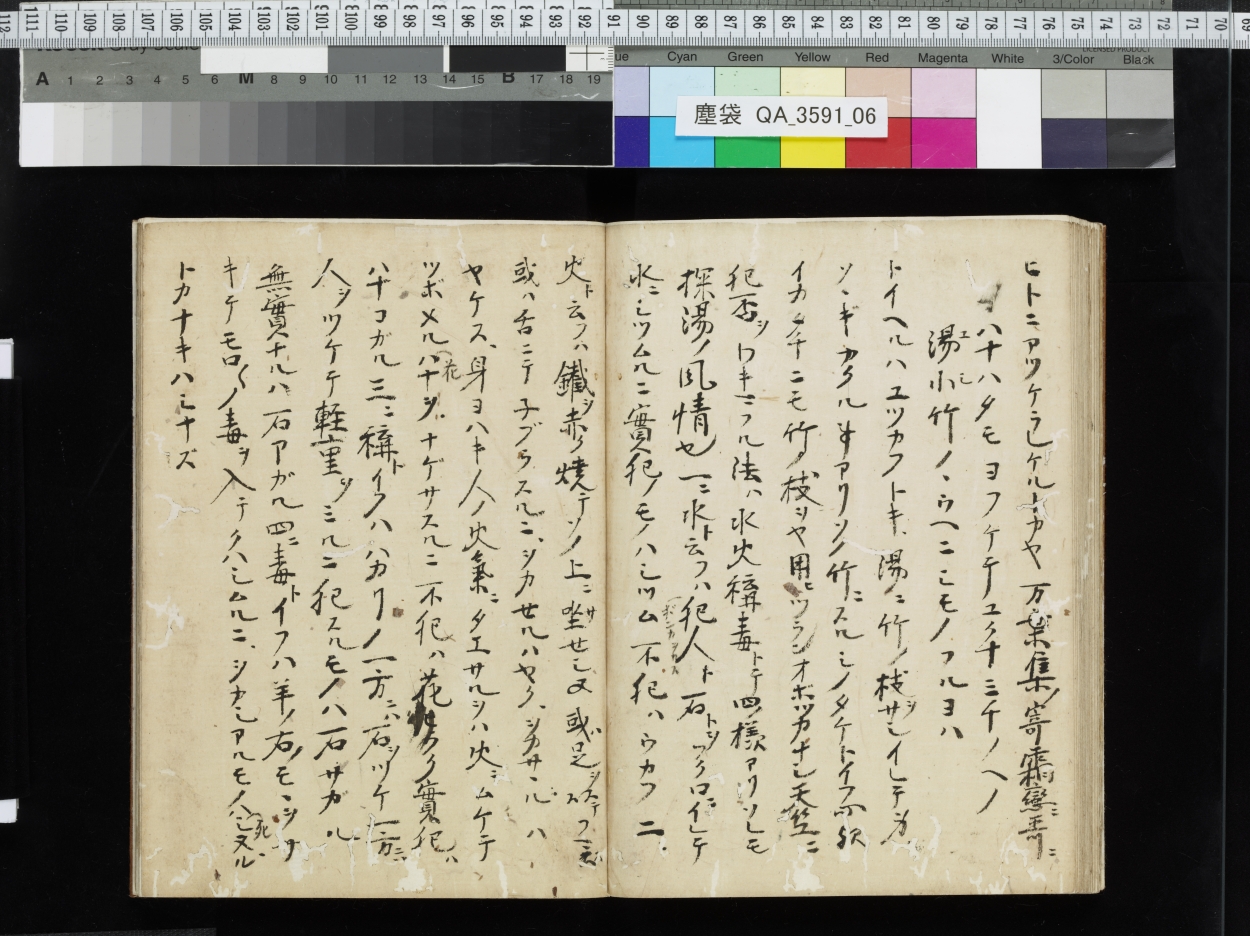 塵袋 QA_3591_06
A 1 2 3 4 5 6 M 8 9 10 11 12 13 14 15 B 17 18 19
Cyan Green Yellow Red Magenta White 3/Color Black
ヒトニアツケラレケルトカヤ万葉集ノ寄霜戀哥ニ
ハナハタモヨフケテユクナミチノヘノ
湯小竹ノウヘニシモノフルヨハ
トイヘルハユツカフトキ湯ニ竹ノ枝サシイレテ
ソヽギカクル事アリソノ竹ニスルシノタケトイフ
イカサマニモ竹ノ枝ヲヤ用ヒツランオボツカナシ天竺ニ
犯否ヲワキマフル法ハ水火稱毒トテ四ノ様アリソレモ
探湯ノ風情也一ニ水ト云フハ犯人ト石トヲフクロニイレテ
水ニシツムルニ實犯ノモノハシツム不犯ハウカフ二ニ
火ト云フハ鐵ヲ赤ク焼テソノ上ニ坐セシメ或ハ足ヲ
或ハ舌ニテネブラスルニシカセルハヤク
ヤケス身ヨハキ人ノ火氣ニタエサルヲハ火ニムケテ
ツボメルハナヲナゲサスルニ不犯ハ花ヒラク實犯ハ
ハナコガル三ニ稱トイフハハカリノ一方ニハ石ヲツケ一方ニ
人ヲツケテ軽重ヲミルニ犯スルモノハ石サガル
無實ナルハ石アガル四ニ毒トイフハ羊ノ右ノモヽヲサ
キテモロ〱ノ毒ヲ入テクハシムルニシカシアルモノハシヌル
トカナキハシナズ